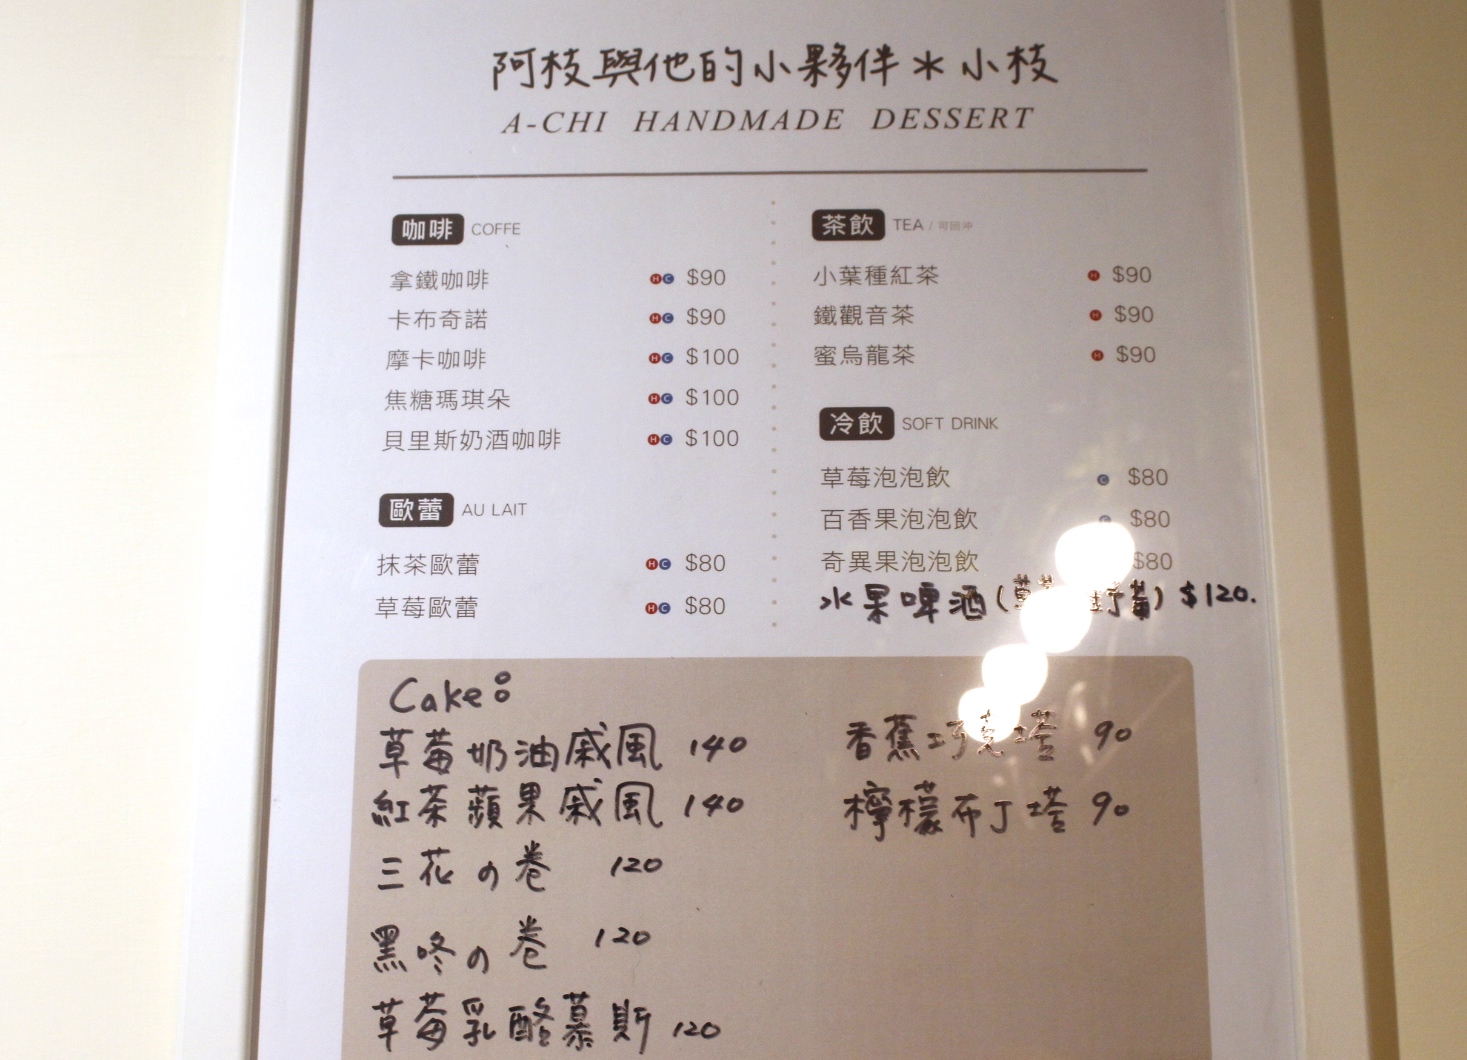 阿枝與他的小夥伴＊小枝
A-CHI HANDMADE DESSERT
咖啡 COFFE
拿鐵咖啡 H C $90
卡布奇諾 H C $90
摩卡咖啡 H C $100
焦糖瑪琪朵 H C $100
貝里斯奶酒咖啡 H C $100
歐蕾 AU LAIT
抹茶歐蕾 H C $80
草莓歐蕾 H C $80
茶飲 TEA / 可回沖
小葉種紅茶 H $90
鐵觀音茶 H $90
蜜烏龍茶 H $90
冷飲 SOFT DRINK
草莓泡泡飲 C $80
百香果泡泡飲 C $80
奇異果泡泡飲 $80
水果啤酒(草 莓) $120.
Cake:
草莓奶油戚風 140
紅茶蘋果戚風 140
三花の卷 120
黑咚の卷 120
草莓乳酪慕斯 120
香蕉巧克塔 90
檸檬布丁塔 90